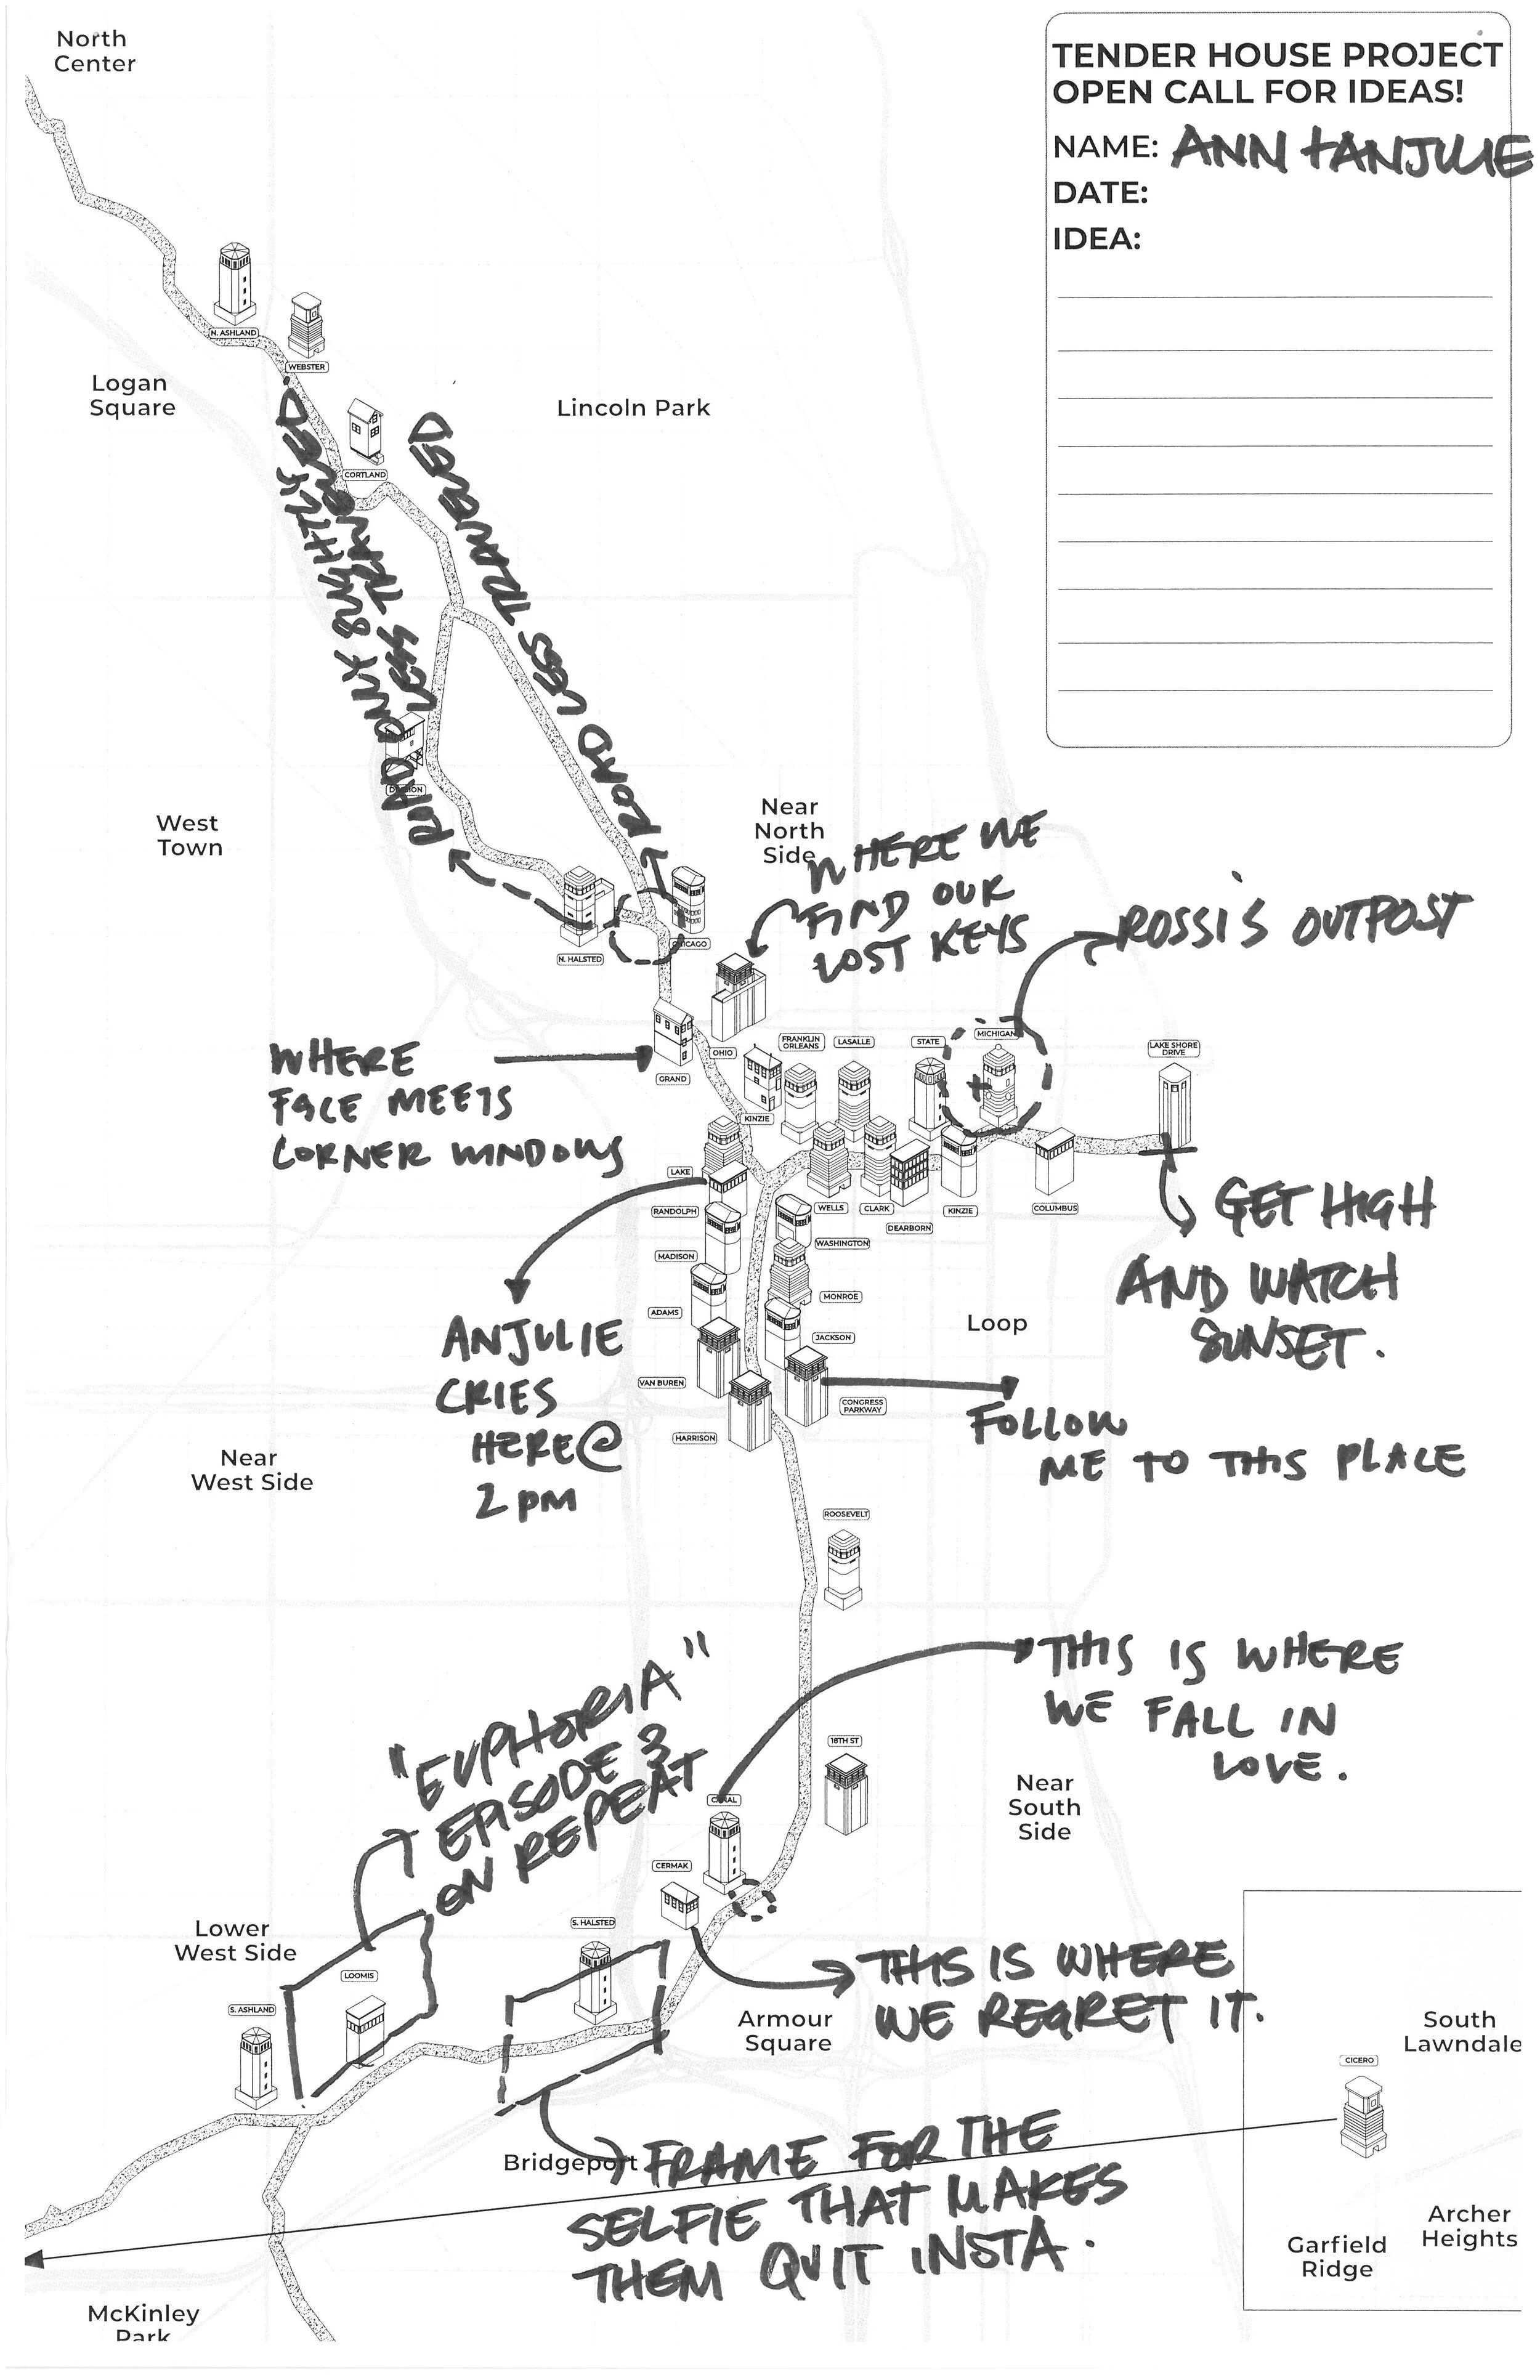 North
Center
TENDER HOUSE PROJECT
OPEN CALL FOR IDEAS!
NAME: ANN + ANJULIE
DATE:
IDEA:
N. ASHLAND
WEBSTER
Logan
Square
Lincoln Park
CORTLAND
ROAD LESS TRAVELED
ROAD LESS TRAVELED
DIVISION
West
Town
Near
North
Side
WHERE WE
FIND OUR
LOST KEYS
ROSSI'S OUTPOST
N. HALSTED
CHICAGO
WHERE
FACE MEETS
CORNER WINDOWS
GRAND
OHIO
FRANKLIN
ORLEANS
LASALLE
STATE
MICHIGAN
LAKE SHORE
DRIVE
KINZIE
LAKE
RANDOLPH
WELLS
CLARK
DEARBORN
KINZIE
COLUMBUS
GET HIGH
AND WATCH
SUNSET.
WASHINGTON
MADISON
MONROE
ADAMS
JACKSON
Loop
ANJULIE
CRIES
HERE @
2 PM
VAN BUREN
CONGRESS
PARKWAY
HARRISON
FOLLOW
ME TO THIS PLACE
Near
West Side
ROOSEVELT
THIS IS WHERE
WE FALL IN
LOVE.
"EUPHORIA"
EPISODE 3
ON REPEAT
18TH ST
CANAL
Near
South
Side
CERMAK
Lower
West Side
S. HALSTED
LOOMIS
S. ASHLAND
THIS IS WHERE
WE REGRET IT.
Armour
Square
South
Lawndale
CICERO
Bridgeport
FRAME FOR THE
SELFIE THAT MAKES
THEM QUIT INSTA.
Archer
Heights
Garfield
Ridge
McKinley
Park